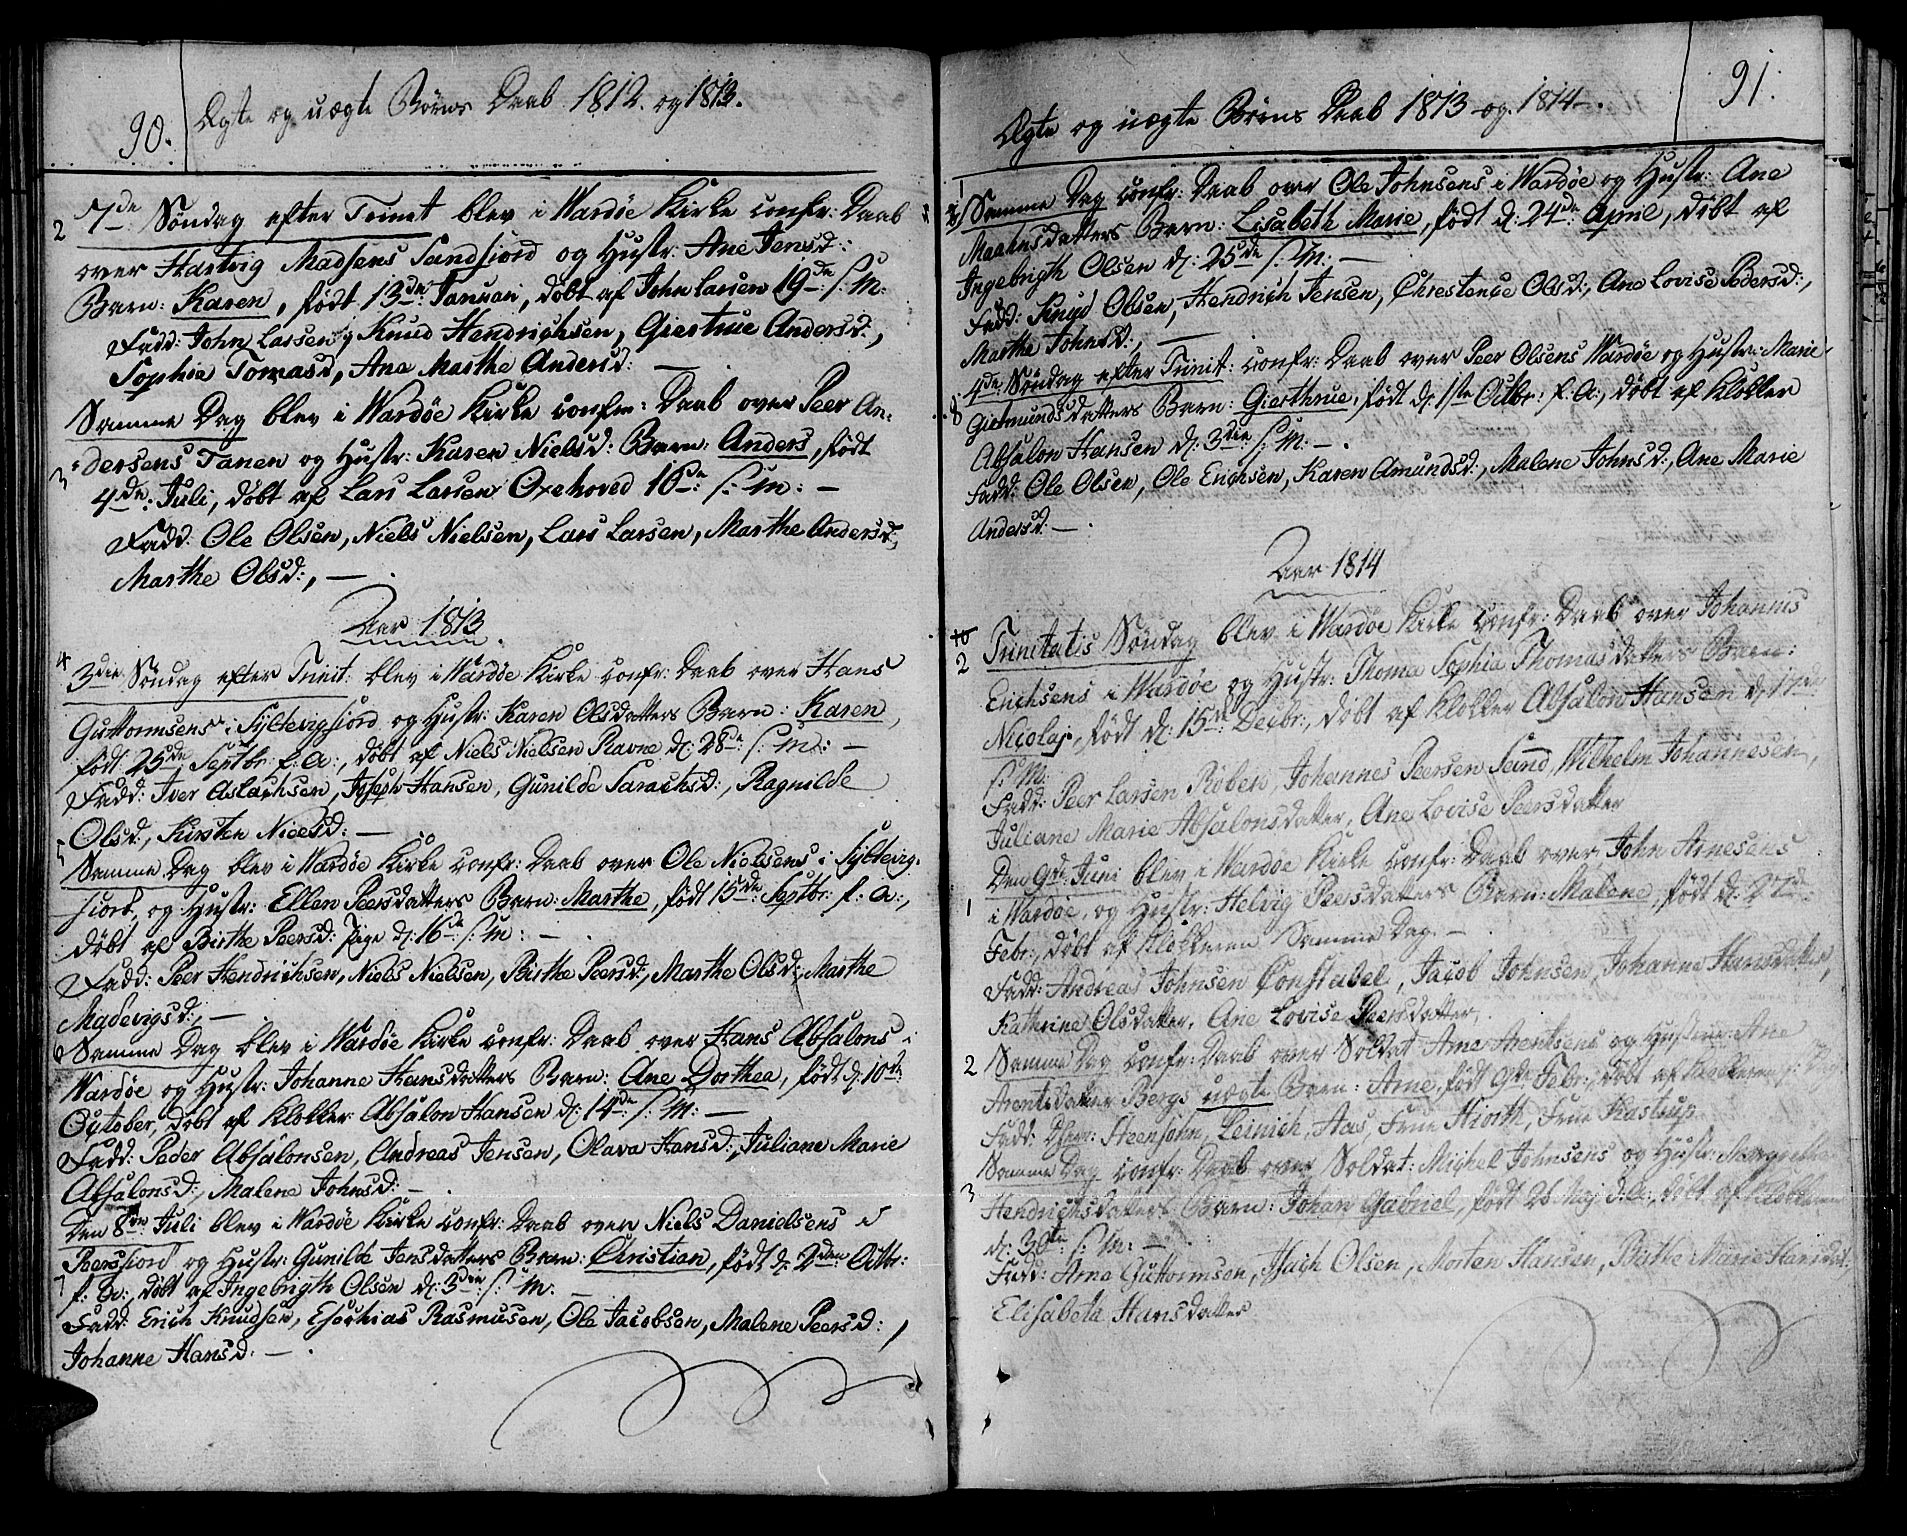 90.
Ægte og uægte Børns Daab 1812. og 1813.
2 7de Søndag efter Trinet blev i Wardøe Kirke confr: Daab
over Hartvig Madsens Sandfiord og Hustr: Ane Jensd:
Barn: Karen, født 13de Januari, døbt af John Larsen 19de s: M:
Fadd: John Larsen, Knud Hendrichsen, Giertrue Andersd:,
Sophia Tomasd, Ane Marthe Andersd: —
Samme Dag blev i Wardøe Kirke confr: Daab over Peer An-
3 dersens Tanen og Hustr: Karen Nielsd: Barn: Anders, født
4de Juli, døbt af Lars Larsen Oxehoved 16de s: M: —
Fadd: Ole Olsen, Niels Nielsen, Lars Larsen, Marthe Andersd,
Marthe Olsd:, — .
Aar 1813.
4 3die Søndag efter Trinit: blev i Wardøe Kirke confr: Daab over Hans
Guttormsens i Syltevigfiord og Hustr: Karen Olsdatters Barn: Karen,
født 25de Septbr: f: A:, døbt af Niels Nielsen Ravne d: 28de s: M: —
Fadd: Iver Aslachsen, Joseph Hansen, Gunilde Sarachsd:, Ragnilde
Olsd:, Kirsten Nielsd: —
5 Samme Dag blev i Wardøe Kirke confr: Daab over Ole Nielsens i Syltevig-
fiord, og Hustr: Ellen Peersdatters Barn: Marthe, født 15de Septbr: f: A:,
døbt af Birthe Peersd: Pige d: 16de s: M: —
Fadd: Peer Hendrichsen, Niels Nielsen, Birthe Peersd:, Marthe Olsd:, Marthe
Madevigsd:, —
6 Samme Dag blev i Wardøe Kirke confr: Daab over Hans Absalons i
Wardøe og Hustr: Johanne Hansdatters Barn: Ane Dorthea, født d: 10de
October, døbt af Klokker Absalon Hansen d: 14de s: M: —
Fadd: Peder Absalonsen, Andreas Jensen, Olava Hansd:, Juliane Marie
Absalonsd:, Malene Johnsd: — .
Den 8de Juli blev i Wardøe Kirke confr: Daab over Niels Danielsens i
Peersfiord og Hustr: Gunilde Jensdatters Barn: Christian, født d: 2den Octbr:
7 f: A:, døbt af Ingebrigth Olsen d: 3den s: M: —
Fadd: Erich Knudsen, Esechias Rasmusen, Ole Jacobsen, Malene Peersd:,
Johanne Hansd: — .
91.
Ægte og uægte Børns Daab 1813 og 1814.
Samme Dag confr: Daab over Ole Johnsens i Wardøe og Hustr: Ane
Madsdatters Barn: Lisabeth Marie, født d: 24de April, døbt af
Ingebrigth Olsen d: 25de s: M: —
Fadd: Knud Olsen, Hendrich Jensen, Chrestence Olsd:, Ane Lovise Pedersd:,
Marthe Johnsd:, —
4de Søndag efter Trinit: confr: Daab over Peer Olsens Wardøe og Hustr: Marie
8 Gietmundsdatters Barn: Gierthrue, født d: 1ste Octbr: f: A:, døbt af Klokker
Absalon Hansen d: 3die s: M: — .
Fadd: Ole Olsen, Ole Erichsen, Karen Amundsd:, Malene Johnsd:, Ane Marie
Andersd: — .
Aar 1814
Trinitatis Søndag blev i Wardøe Kirke confr: Daab over Johannis
2 Erichsens i Wardøe og Hustr: Thoma Sophia Thomasdatters Barn:
Nicolai, født d: 15de Decbr:, døbt af Klokker Absalon Hansen d: 17de
s: M:
Fadd: Peer Larsen Røben, Johannes Peersen Sund, Wilhelm Johannesen,
Juliane Marie Absalonsdatter, Ane Lovise Peersdatter
Den 9de Juni blev i Wardøe Kirke confr: Daab over John Arnesens
1 i Wardøe, og Hustr: Helvig Peersdatters Barn: Malene, født d: 27de
Febr:, døbt af Klokkeren Samme Dag — .
Fadd: Andreas Johnsen Constabel, Jacob Johnsen, Johanne Hansdatter,
Kathrine Olsdatter, Ane Lovise Peersdatter.
2 Samme Dag confr: Daab over Soldat Arne Arentsens og Hustrue Ane
Arentsdatter Bergs uægte Barn: Arne, født 9de Febr:, døbt af Klokkeren
Fadd: Steensohn, Leinich, Aas, Frue Hiorth, Frue Kastrup
Samme Dag confr: Daab over Soldat: Michel Johnsens og Hustr: Margrethe
3 Hendrichsdatters Barn: Johan Gabriel, født 26 Maj d: A:, døbt af Klokkeren
d: 30te s: M: —
Fadd: Arne Guttormsen, Hagh Olsen, Morten Hansen, Birthe Marie Hansdat:,
Elisabeta Hansdatter